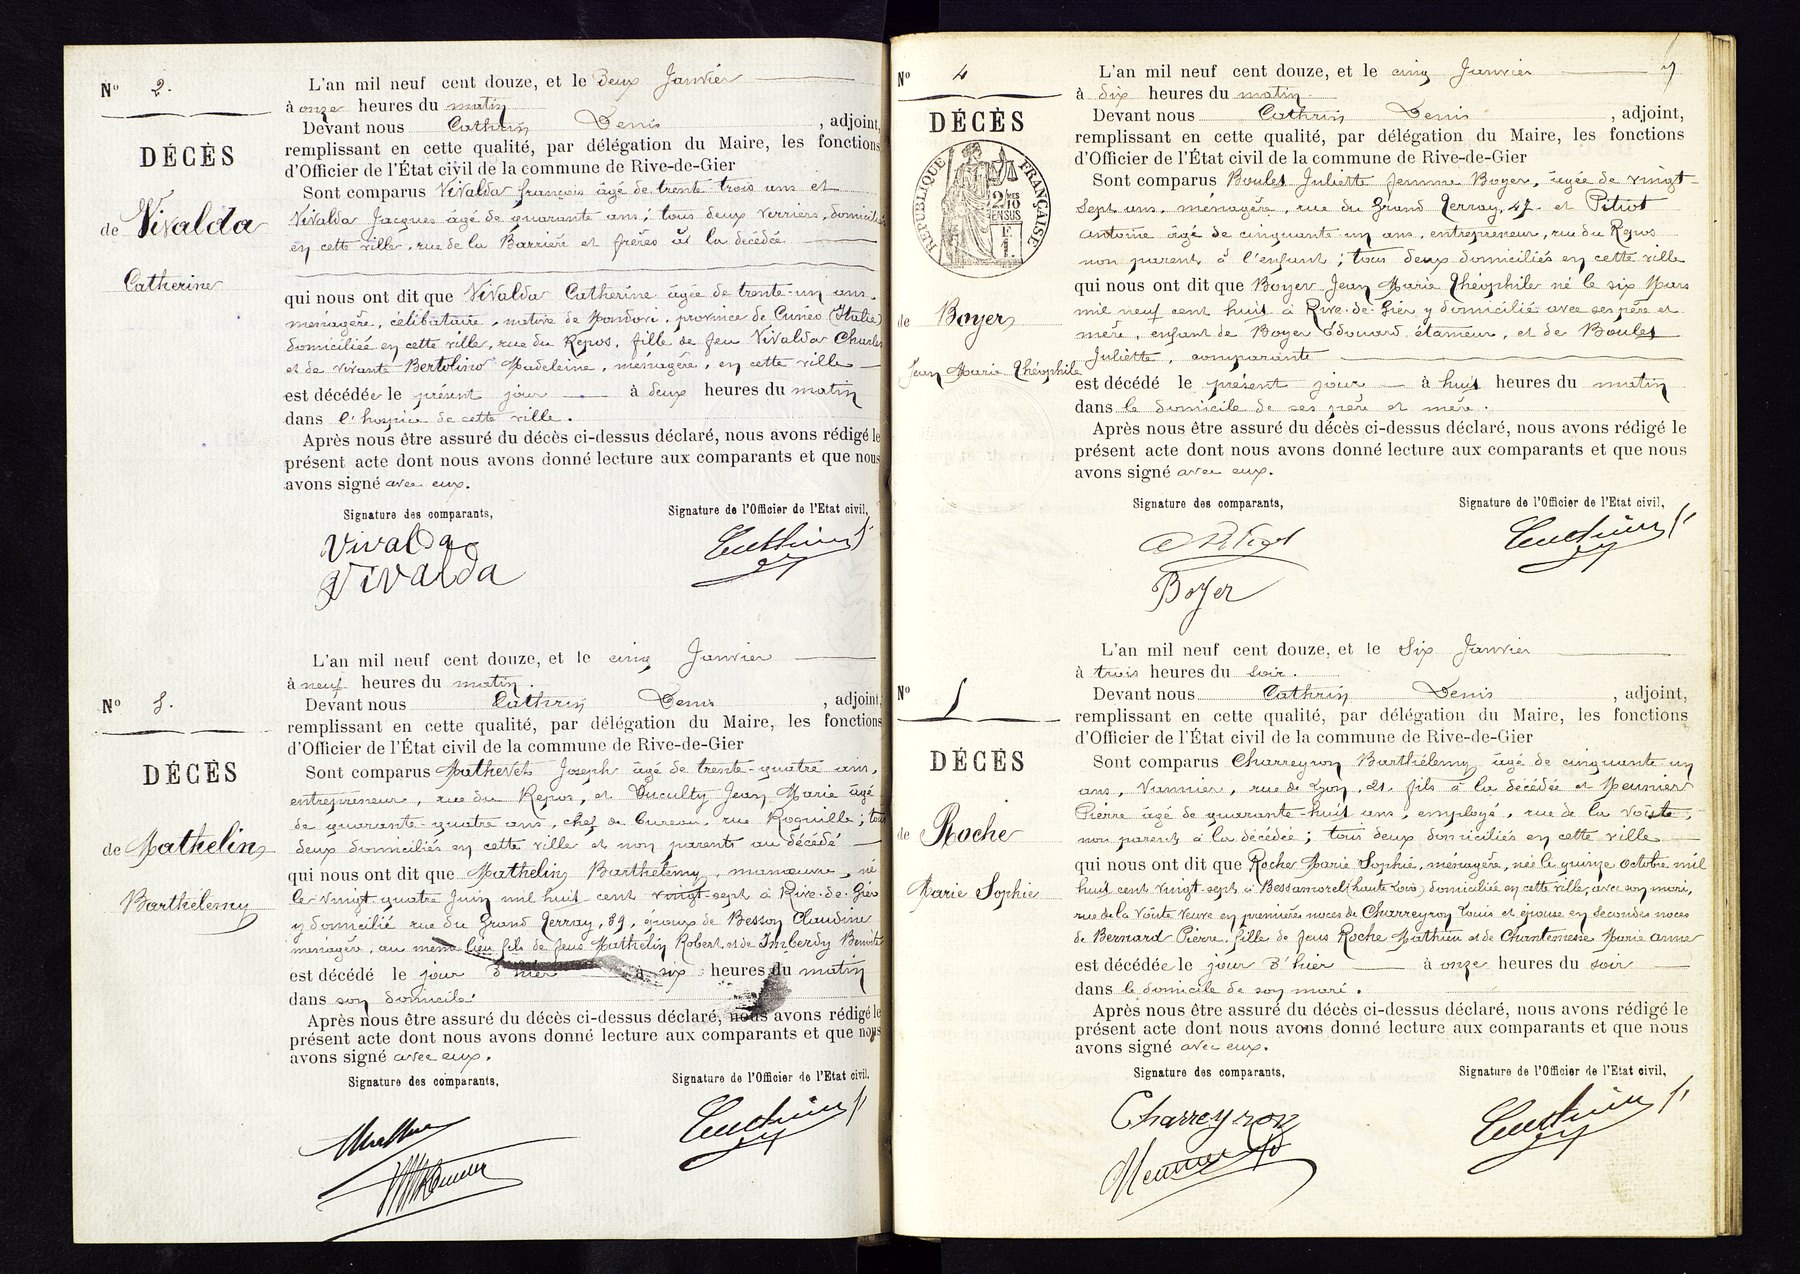 Nº 2.
DÉCÈS
de Vivalda
Catherine
L'an mil neuf cent douze, et le deux Janvier
à onze heures du matin
Devant nous Cathrin Denis, adjoint,
remplissant en cette qualité, par délégation du Maire, les fonctions
d'Officier de l'État civil de la commune de Rive-de-Gier
Sont comparus Vivalda françois âgé de trente trois ans et
Vivalda Jacques âgé de quarante ans ; tous deux verriers, domiciliés
en cette ville, rue de la Barrière et frères à la décédée
qui nous ont dit que Vivalda Catherine âgée de trente-un ans.
ménagère, célibataire, native de Mondovi, province de Cuneo (Italie)
domiciliée en cette ville, rue du Repos, fille de feu Vivalda Charles
et de vivante Bertolino Madeleine, ménagère, en cette ville
est décédée le présent jour à deux heures du matin
dans l'hospice de cette ville.
Après nous être assuré du décès ci-dessus déclaré, nous avons rédigé le
présent acte dont nous avons donné lecture aux comparants et que nous
avons signé avec eux.
Signature des comparants, Signature de l'Officier de l'Etat civil,
Vivalda Cathrin
Vivalda
Nº 3.
DÉCÈS
de Mathelin
Barthélemy
L'an mil neuf cent douze, et le cinq Janvier
à neuf heures du matin.
Devant nous Cathrin Denis, adjoint,
remplissant en cette qualité, par délégation du Maire, les fonctions
d'Officier de l'État civil de la commune de Rive-de-Gier
Sont comparus Mathevet Joseph âgé de trente-quatre ans,
entrepreneur, rue du Repos, et Duculty Jean Marie âgé
de quarante quatre ans, chef de bureau, rue Roquille ; tous
deux domiciliés en cette ville et non parents au décédé
qui nous ont dit que Mathelin Barthélemy, manœuvre, né
le vingt quatre Juin mil huit cent vingt-sept à Rive-de-Gier
y domicilié rue du Grand Gerray, 89, époux de Besson Claudine
ménagère, au même lieu fils de feus Mathelin Robert et de Imberdy Benoîte
est décédé le jour d'hier à six heures du matin
dans son domicile.
Après nous être assuré du décès ci-dessus déclaré, nous avons rédigé le
présent acte dont nous avons donné lecture aux comparants et que nous
avons signé avec eux.
Signature des comparants, Signature de l'Officier de l'Etat civil,
Cathrin
Nº 4
DÉCÈS
RÉPUBLIQUE FRANÇAISE
2/10 EN SUS
de Boyer
Jean Marie Théophile
L'an mil neuf cent douze, et le cinq Janvier
à dix heures du matin.
Devant nous Cathrin Denis, adjoint,
remplissant en cette qualité, par délégation du Maire, les fonctions
d'Officier de l'État civil de la commune de Rive-de-Gier
Sont comparus Boulet Juliette femme Boyer, âgée de vingt-
sept ans, ménagère, rue du Grand Gerray, 47. et Pitiot
antoine âgé de cinquante un ans, entrepreneur, rue du Repos
non parent à l'enfant ; tous deux domiciliés en cette ville
qui nous ont dit que Boyer Jean Marie Théophile né le six Mars
mil neuf cent huit à Rive-de-Gier y domicilié avec ses père et
mère, enfant de Boyer Edouard, étameur, et de Boulet
Juliette, comparante
est décédé le présent jour à huit heures du matin
dans le domicile de ses père et mère.
Après nous être assuré du décès ci-dessus déclaré, nous avons rédigé le
présent acte dont nous avons donné lecture aux comparants et que nous
avons signé avec eux.
Signature des comparants, Signature de l'Officier de l'Etat civil,
Cathrin
Boyer
Nº 5
DÉCÈS
de Roche
Marie Sophie
L'an mil neuf cent douze, et le Six Janvier
à trois heures du soir.
Devant nous Cathrin Denis, adjoint,
remplissant en cette qualité, par délégation du Maire, les fonctions
d'Officier de l'État civil de la commune de Rive-de-Gier
Sont comparus Charreyron Barthélemy âgé de cinquante un
ans, Vannier, rue de Lyon, 21. fils à la décédée et Meunier
Pierre âgé de quarante-huit ans, employé, rue de la Voûte,
non parent à la décédée ; tous deux domiciliés en cette ville
qui nous ont dit que Roche Marie Sophie, ménagère, née le quinze octobre mil
huit cent vingt-sept à Bessamorel (haute Loire) domiciliée en cette ville, avec son mari,
rue de la Voûte Veuve en premières noces de Charreyron Louis et épouse en secondes noces
de Bernard Pierre, fille de feus Roche Mathieu et de Chantemesse Marie anne
est décédée le jour d'hier à onze heures du soir
dans le domicile de son mari.
Après nous être assuré du décès ci-dessus déclaré, nous avons rédigé le
présent acte dont nous avons donné lecture aux comparants et que nous
avons signé avec eux.
Signature des comparants, Signature de l'Officier de l'Etat civil,
Charreyron Cathrin
Meunier